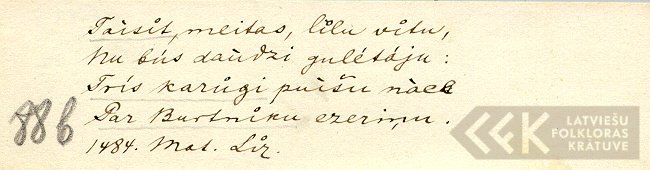 Tàisìt, meitas, lîlu vîtu,
Nu bûs dàudzi gulêtâju:
Trîs karùgi pùišu nàce
Par Burtnîku ezeriņu.
88b
1484. Mat. Lîz.
LATVIEŠU
FOLKLORAS
KRĀTUVE